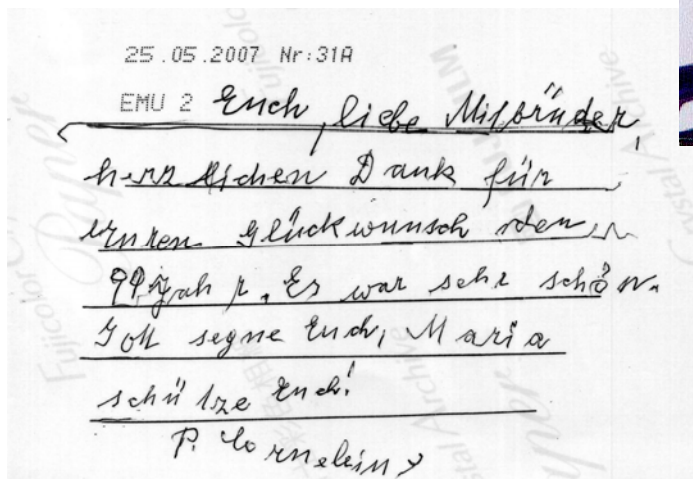 25.05.2007 Nr:31A
EMU 2 Euch, liebe Mitbrüder,
herzlichen Dank für
euren Glückwunsch
Jahr. Es war sehr schön.
Gott segne Euch, Maria
schütze Euch!
P.
Fujicolor Crystal Archive Paper